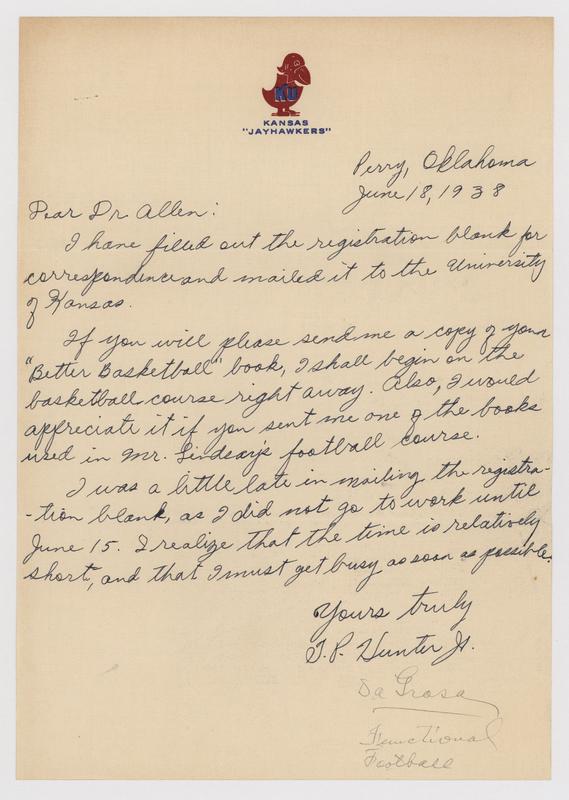 KU
KANSAS
"JAYHAWKERS"
Perry, Oklahoma
June 18, 1938
Dear Dr. Allen:
I have filled out the registration blank for
correspondence and mailed it to the University
of Kansas.
If you will please send me a copy of your
"Better Basketball" book, I shall begin on the
basketball course right away. Also, I would
appreciate it if you sent me one of the books
used in Mr. Lindsay's football course.
I was a little late in mailing the registra-
-tion blank, as I did not go to work until
June 15. I realize that the time is relatively
short, and that I must get busy as soon as possible.
Yours truly
T.P. Hunter Jr.
Da Grosa
Functional
Football